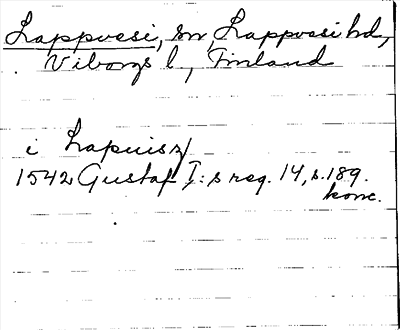 Lappvesi, sn, Lappvesi hd,
Viborgs l, Finland
i Lapuisz
1542 Gustaf I:s reg. 14, s. 189.
konc.